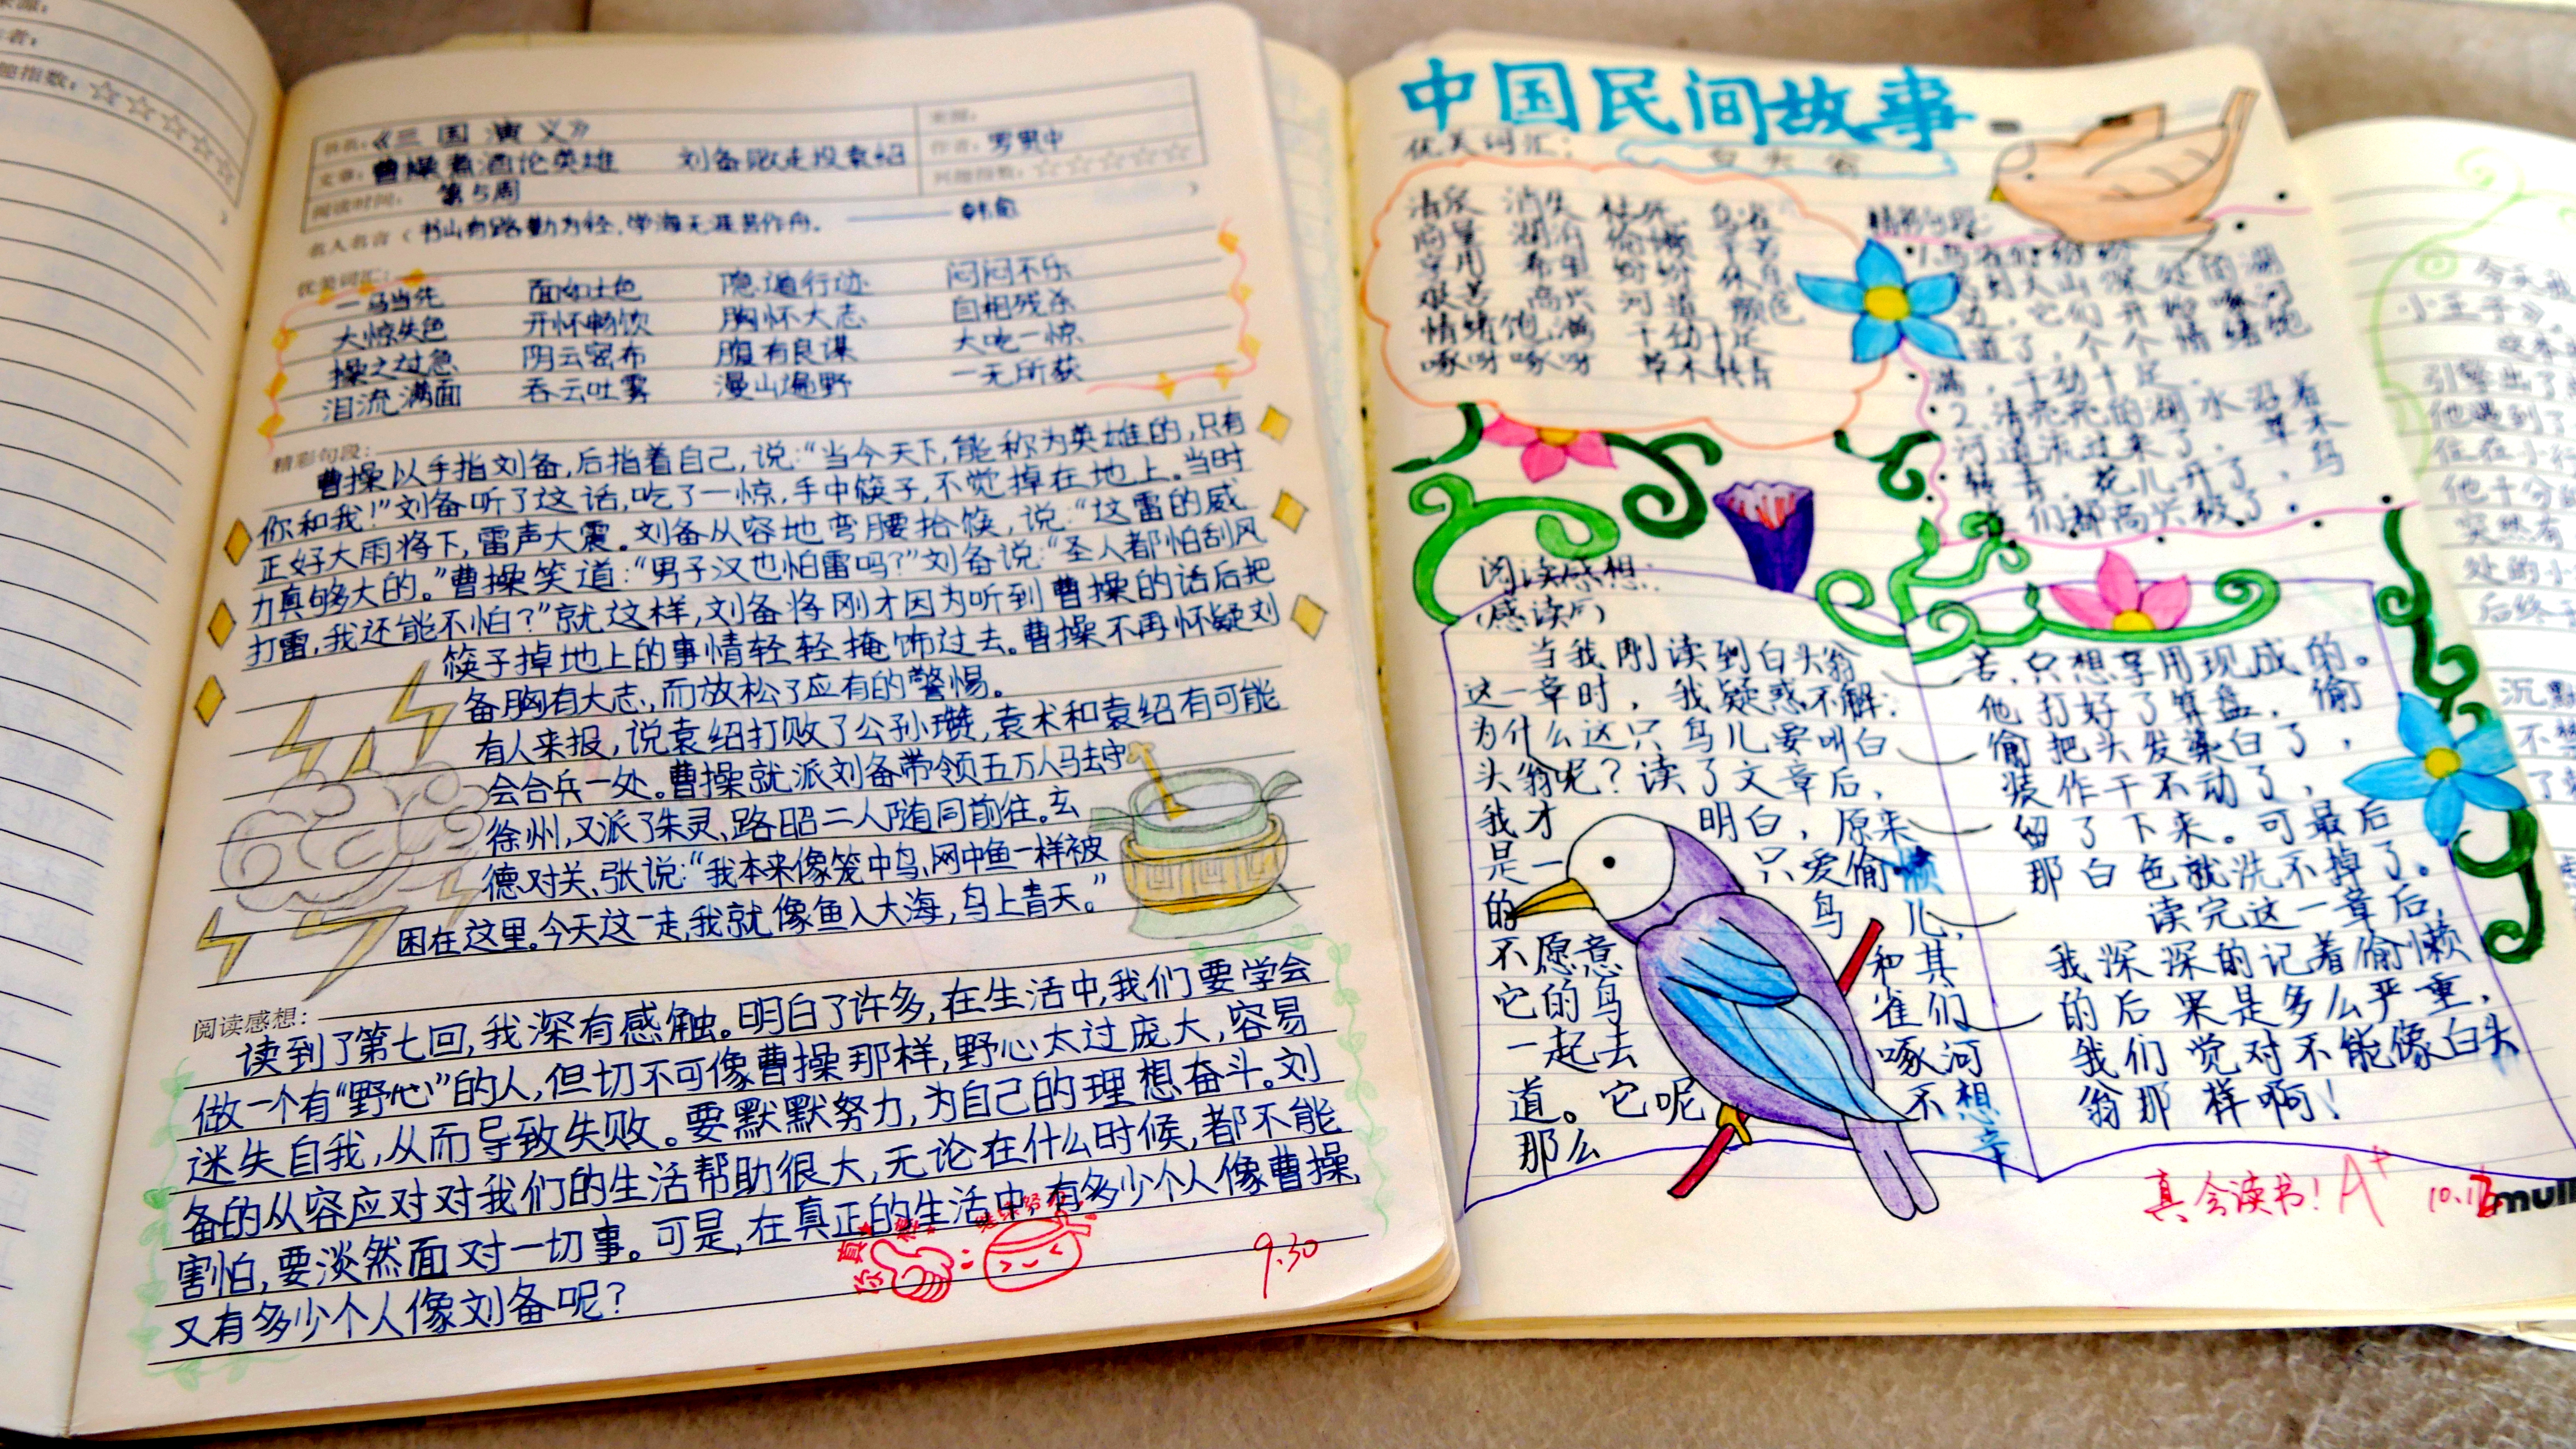 者：
趣指数：☆☆☆☆☆
书名：《三国演义》
来源：
文章：曹操煮酒论英雄 刘备败走投袁绍
作者：罗贯中
兴趣指数：☆☆☆☆☆
阅读时间：第5周
名人名言（书山有路勤为径，学海无涯苦作舟。——韩愈）
优美词汇：
一马当先 面如土色 隐遁行迹 闷闷不乐
大惊失色 开怀畅饮 胸怀大志 自相残杀
操之过急 阴云密布 腹有良谋 大吃一惊
泪流满面 吞云吐雾 漫山遍野 一无所获
精彩句段：
曹操以手指刘备,后指着自己,说:“当今天下,能称为英雄的,只有
你和我!”刘备听了这话,吃了一惊,手中筷子,不觉掉在地上。当时
正好大雨将下,雷声大震。刘备从容地弯腰拾筷,说:“这雷的威
力真够大的。”曹操笑道:“男子汉也怕雷吗?”刘备说:“圣人都怕刮风
打雷,我还能不怕?”就这样,刘备将刚才因为听到曹操的话后把
筷子掉地上的事情轻轻掩饰过去。曹操不再怀疑刘
备胸有大志,而放松了应有的警惕。
有人来报,说袁绍打败了公孙瓒,袁术和袁绍有可能
会合兵一处。曹操就派刘备带领五万人马去守
徐州,又派了朱灵、路昭二人随同前往。玄
德对关、张说:“我本来像笼中鸟、网中鱼一样被
困在这里。今天这一走,我就像鱼入大海,鸟上青天。”
阅读感想：
读到了第七回,我深有感触。明白了许多,在生活中,我们要学会
做一个有“野心”的人,但切不可像曹操那样,野心太过庞大,容易
迷失自我,从而导致失败。要默默努力,为自己的理想奋斗。刘
备的从容应对对我们的生活帮助很大,无论在什么时候,都不能
害怕,要淡然面对一切事。可是,在真正的生活中,有多少个人像曹操,
又有多少个人像刘备呢?
真棒
继续努力
9.30
中国民间故事
优美词汇：
白头翁
清泉 消失 枯死 鸟雀
商量 湖泊 偷懒 辛苦
享用 希望 纷纷 休息
艰苦 高兴 河道 颜色
情绪饱满 干劲十足
啄呀啄呀 草木转青
精彩句段：
1.鸟雀们纷纷
飞到大山深处的湖
边，它们开始啄河
道了，个个情绪饱
满，干劲十足。
2.清亮亮的湖水沿着
河道流过来了，草木
转青，花儿开了，鸟
雀们都高兴极了。
阅读感想：
(感读后)
当我刚读到白头翁
这一章时，我疑惑不解：
为什么这只鸟儿要叫白
头翁呢？读了文章后，
我才明白，原来
是一只爱偷懒
的鸟儿，
不愿意和其
它的鸟雀们
一起去啄河
道。它呢不想
那么辛
苦，只想享用现成的。
他打好了算盘，偷
偷把头发染白了，
装作干不动了，
留了下来。可最后
那白色就洗不掉了。
读完这一章后，
我深深的记着偷懒
的后果是多么严重，
我们觉对不能像白头
翁那样啊！
真会读书！A+
今天
小王子
引擎出了
他遇到了
住在小行
他十分
突然有
处的小
后终
沉默